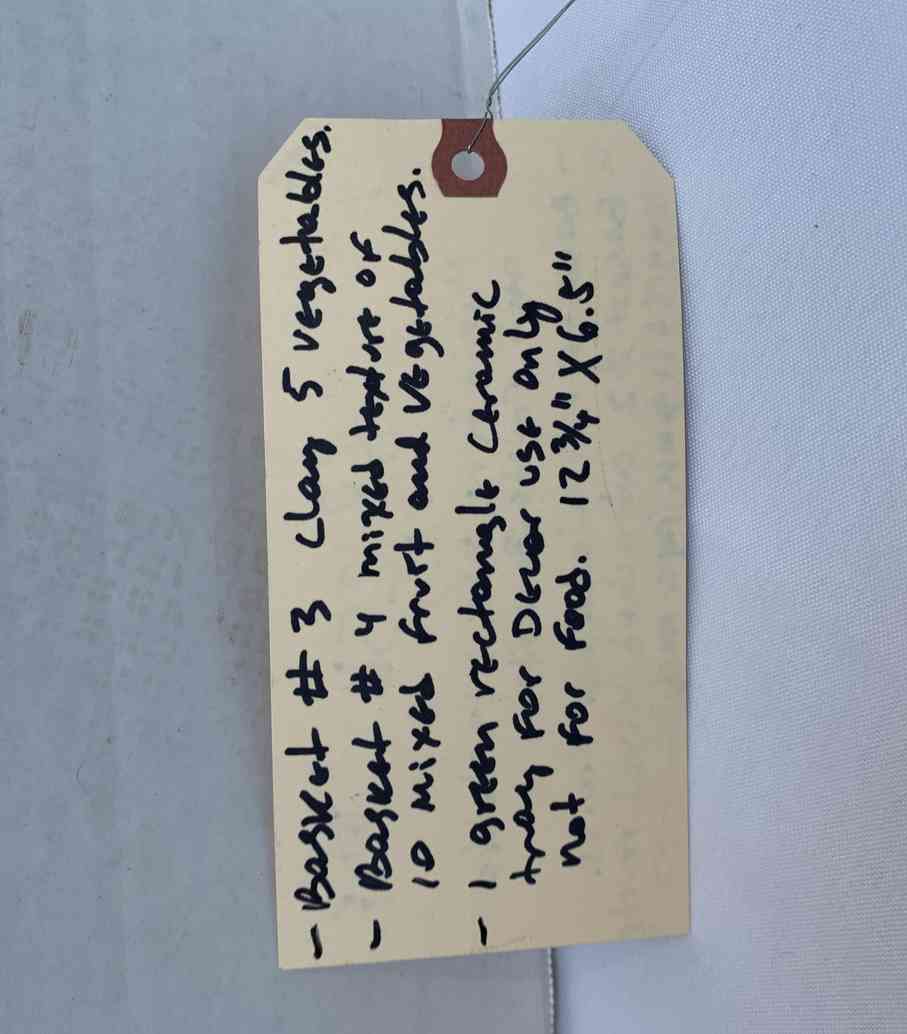 - Basket # 3 clay 5 vegetables.
- Basket # 4 mixed texture of
10 mixed fruit and vegetables.
- 1 green rectangle ceramic
tray for Decor use only
not for food. 12 3/4" X 6.5"